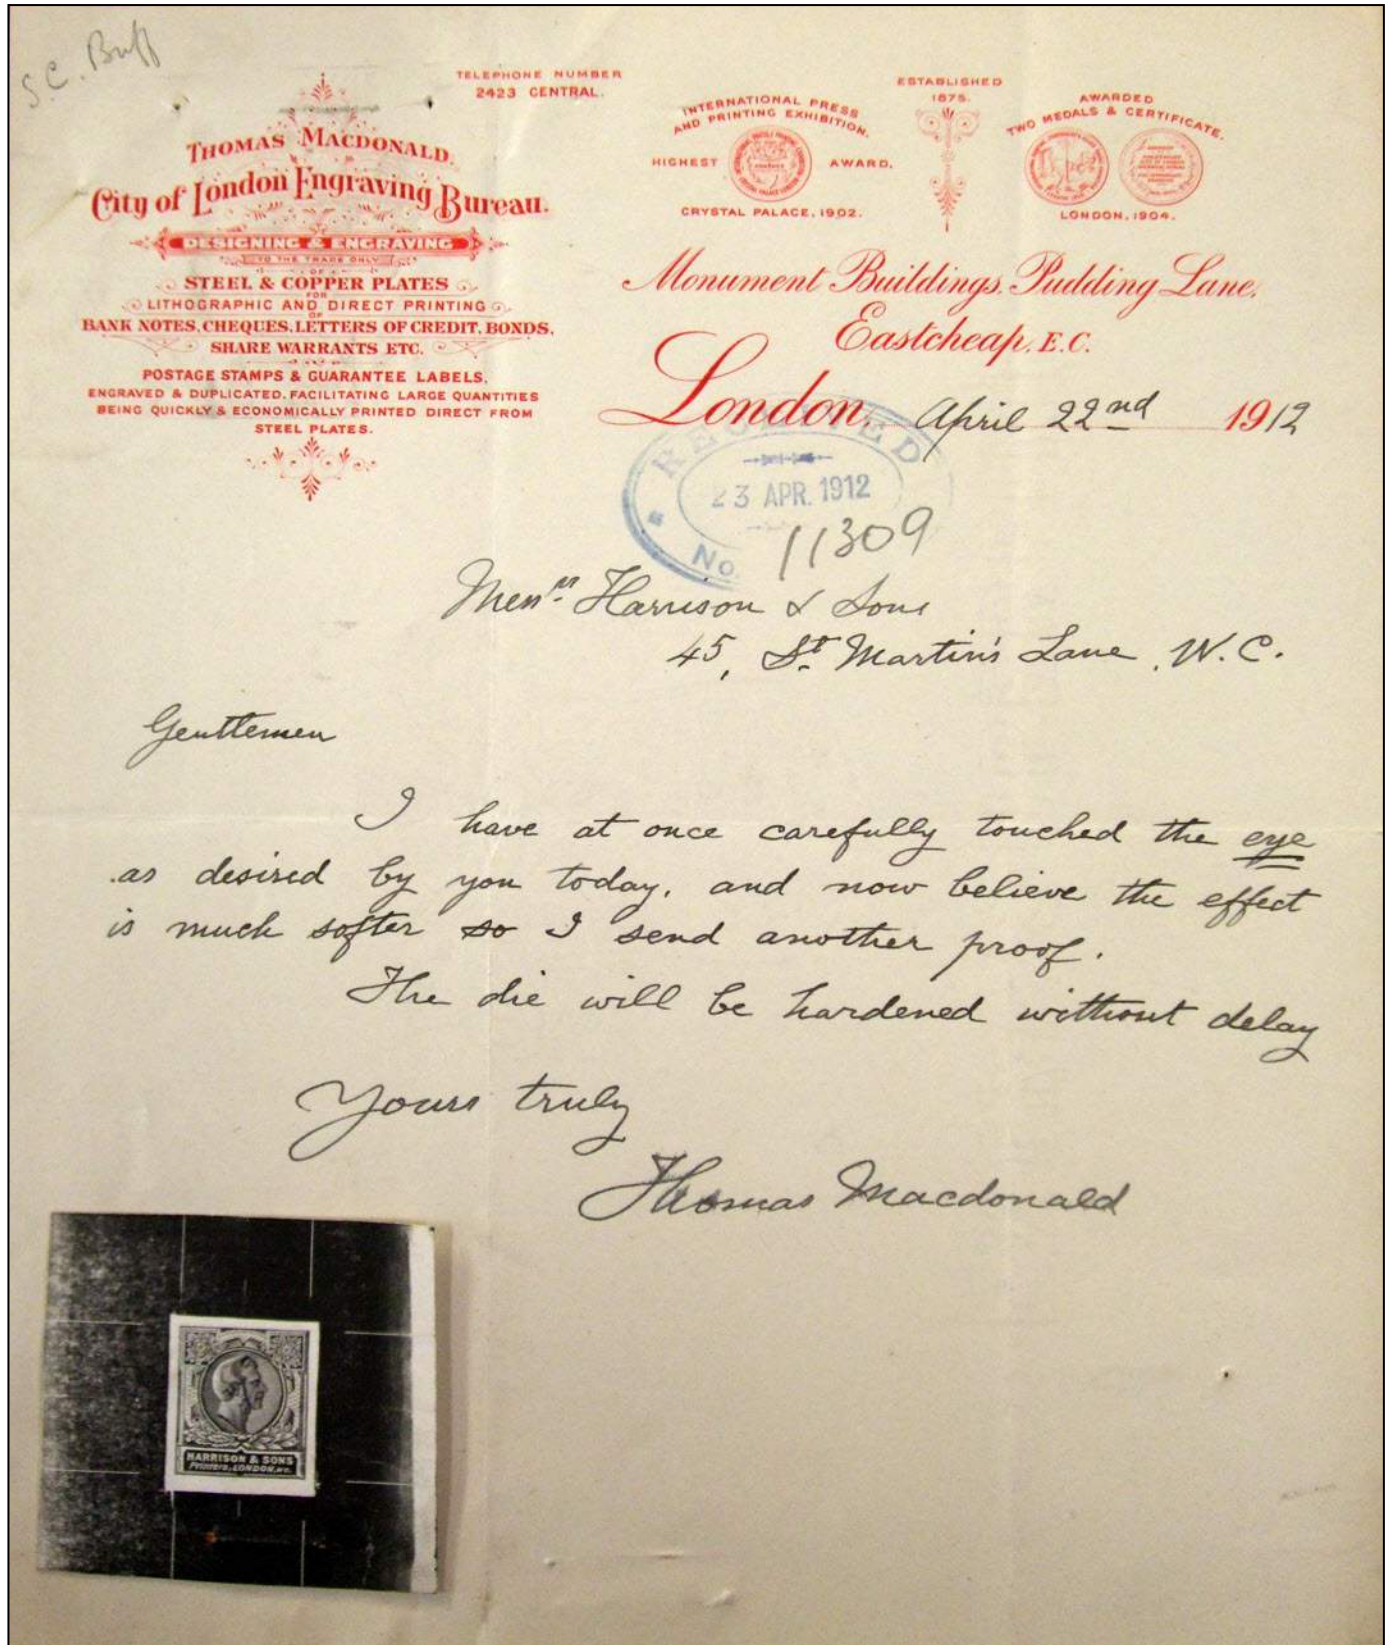 S.C. Buff
TELEPHONE NUMBER
2423 CENTRAL.
THOMAS MACDONALD.
City of London Engraving Bureau.
DESIGNING & ENGRAVING
TO THE TRADE ONLY
OF
STEEL & COPPER PLATES
FOR
LITHOGRAPHIC AND DIRECT PRINTING
OF
BANK NOTES, CHEQUES, LETTERS OF CREDIT, BONDS,
SHARE WARRANTS ETC.
POSTAGE STAMPS & GUARANTEE LABELS,
ENGRAVED & DUPLICATED, FACILITATING LARGE QUANTITIES
BEING QUICKLY & ECONOMICALLY PRINTED DIRECT FROM
STEEL PLATES.
INTERNATIONAL PRESS
AND PRINTING EXHIBITION.
HIGHEST AWARD.
CRYSTAL PALACE, 1902.
ESTABLISHED
1875.
AWARDED
TWO MEDALS & CERTIFICATE.
LONDON, 1904.
Monument Buildings, Pudding Lane,
Eastcheap, E.C.
London, April 22nd 1912
RECEIVED
23 APR. 1912
No. 11309
Messrs. Harrison & Sons
45, St. Martin's Lane, W.C.
Gentlemen
I have at once carefully touched the eye
as desired by you today, and now believe the effect
is much softer so I send another proof.
The die will be hardened without delay
Yours truly
Thomas Macdonald
HARRISON & SONS
Printers, LONDON, W.C.